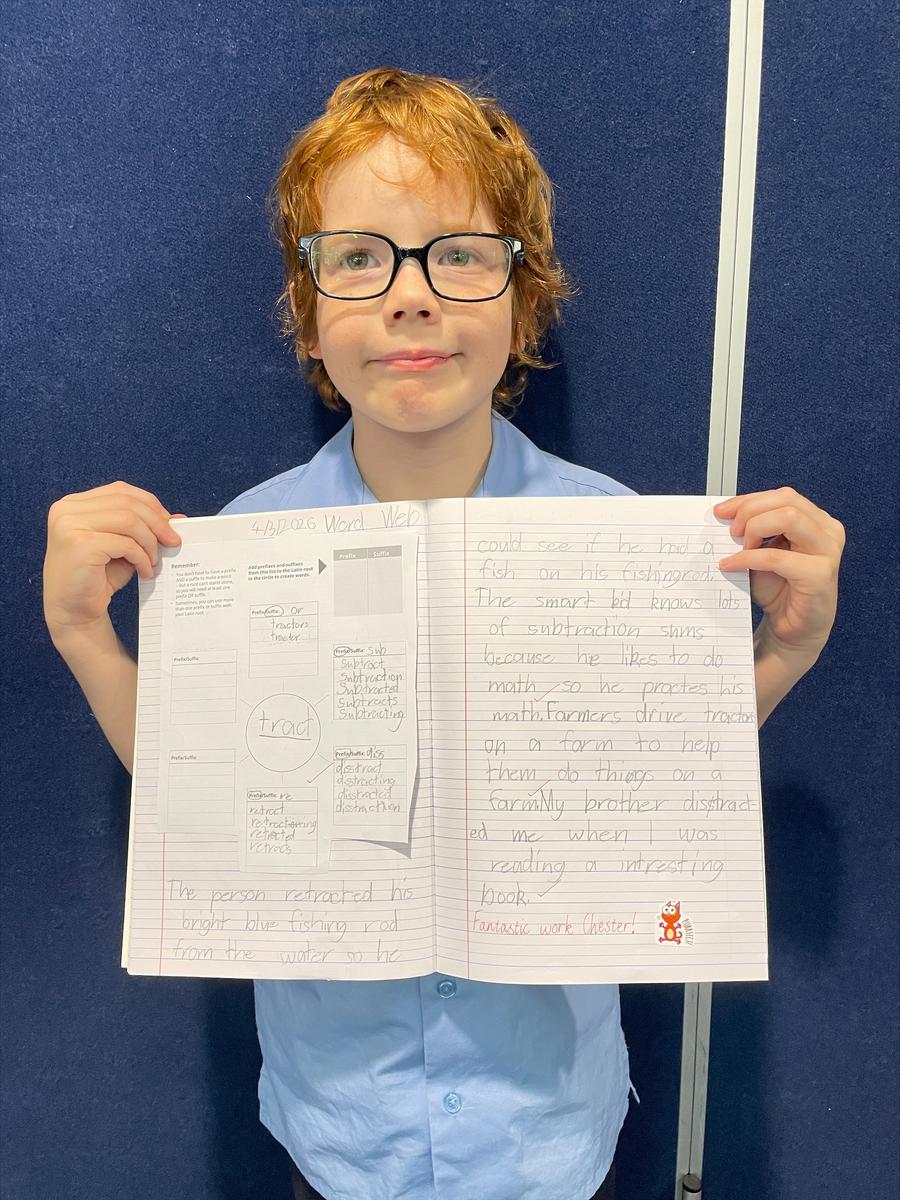 4/3/2026 Word Web
Remember:
- You don't have to have a prefix
AND a suffix to make a word
- but a root can't stand alone,
so you will need at least one
prefix OR suffix.
- Sometimes, you can use more
than one prefix or suffix with
your Latin root.
Add prefixes and suffixes
from this list to the Latin root
in the circle to create words.
Prefix Suffix
Prefix/Suffix: or
tractors
tractor
Prefix/Suffix: Sub
Subtract
Subtraction
Subtracted
Subtracts
Subtracting
Prefix/Suffix:
tract
Prefix/Suffix:
Prefix/Suffix: diss
disstract
disstracting
disstracted
disstraction
Prefix/Suffix: re
retract
retracted
retracs
The person retracted his
bright blue fishing rod
from the water so he
could see if he had a
fish on his fishingrod.
The smart kid knows lots
of subtraction sums
because he likes to do
math so he practes his
math. Farmers drive tractors
on a farm to help
them do things on a
farm. My brother disstract-
ed me when I was
reading a intresting
book.
Fantastic work Chester!